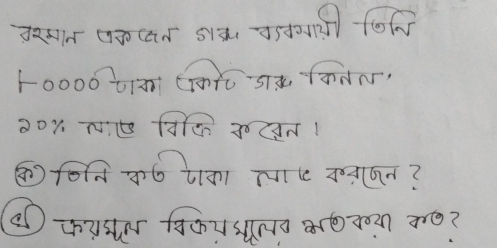 রহমান একজন গরু ব্যবসায়ী তিনি
৮০০০০ টাকা একটি গরু কিনল,
২০% লাভে বিক্রি করেন।
ক) তিনি কত টাকা লাভ করলেন?
খ) ক্রয়মূল বিক্রয়মূলের শতকরা কত?